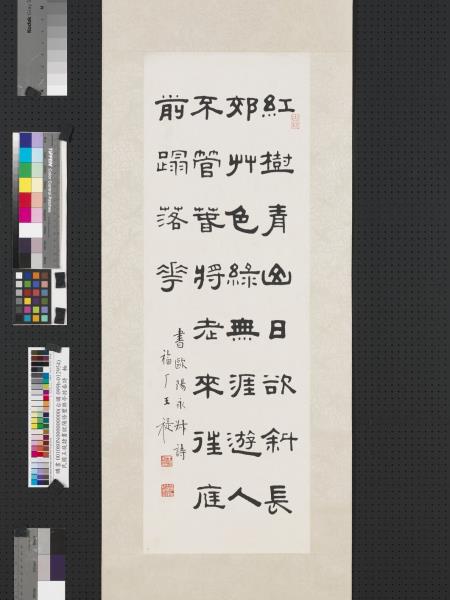 紅樹青山日欲斜長
郊艸色綠無涯遊人
不管萅將老來往庭
前蹋落華
書歐陽永叔詩
福厂王禔
Kodak Gray
TIFFEN Color Control Patches